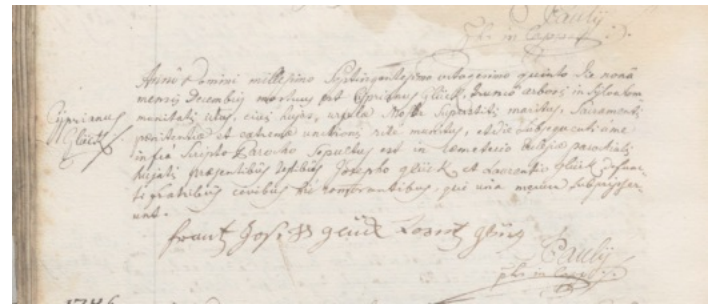 Paulÿ
pbr in Cappel
Anno Domini millesimo Septingentesimo octogesimo quinto die nona
mensis Decembris mortuus est Cÿprianus Glück, arboris in Sylva
ictus, civis hujas, ursula superstitis maritus, Sacramentis
Cÿprianus
Glück
pœnitentiæ et extremæ unctionis rite munitus, et die subsequenti a me
infra scripto Parocho Sepultus est in Cœmeterio Ecclesiæ parochialis
hujatis præsentibus testibus Josepho glück et Laurentio Glück defunc-
ti fratribus civibus hic qui una mecum subscripser-
unt.
frantz Joseph glück Lorentz glück
Paulÿ
pbr in Cappel
1786